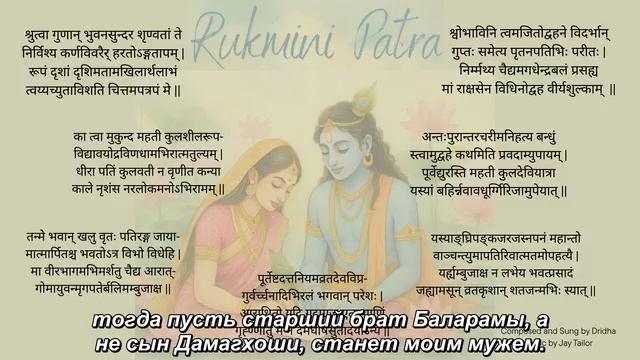 Rukmini Patra
श्रुत्वा गुणान् भुवनसुन्दर शृण्वतां ते
निर्विश्य कर्णविवरैर् हरतोऽङ्गतापम् |
रूपं दृशां दृशिमतामखिलार्थलाभं
त्वय्यच्युताविशति चित्तमपत्रपं मे ||
का त्वा मुकुन्द महती कुलशीलरूप-
विद्यावयोद्रविणधामभिरात्मतुल्यम् |
धीरा पतिं कुलवती न वृणीत कन्या
काले नृशंस नरलोकमनोऽभिरामम् ||
तन्मे भवान् खलु वृतः पतिरङ्ग जाया-
मात्मार्पितश्च भवतोऽत्र विभो विधेहि |
मा वीरभागमभिमर्शतु चैद्य आरात्-
गोमायुवन्मृगपतेर्बलिमम्बुजाक्ष ||
पूर्तेष्टदत्तनियमव्रतदेवविप्र-
गुर्वर्च्चनादिभिरलं भगवान् परेशः |
श्वोभाविनि त्वमजितोद्वहने विदर्भान्
गुप्तः समेत्य पृतनापतिभिः परीतः |
निर्मथ्य चैद्यमगधेन्द्रबलं प्रसह्य
मां राक्षसेन विधिनोद्वह वीर्यशुल्काम् ||
अन्तःपुरान्तरचरीमनिहत्य बन्धुं
स्त्वामुद्वहे कथमिति प्रवदाम्युपायम् |
पूर्वेद्युरस्ति महती कुलदेवियात्रा
यस्यां बहिर्न्नववधूर्ग्गिरिजामुपेयात् ||
यस्याङ्घ्रिपङ्कजरजस्नपनं महान्तो
वाञ्चन्त्युमापतिरिवात्मतमोपहत्यै |
यर्ह्यम्बुजाक्ष न लभेय भवत्प्रसादं
जह्यामसून् व्रतकृशान् शतजन्मभिः स्यात् ||
Composed and Sung by Dridha
by Jay Tailor
тогда пусть старший брат Баларамы, а
не сын Дамагхоши, станет моим мужем.